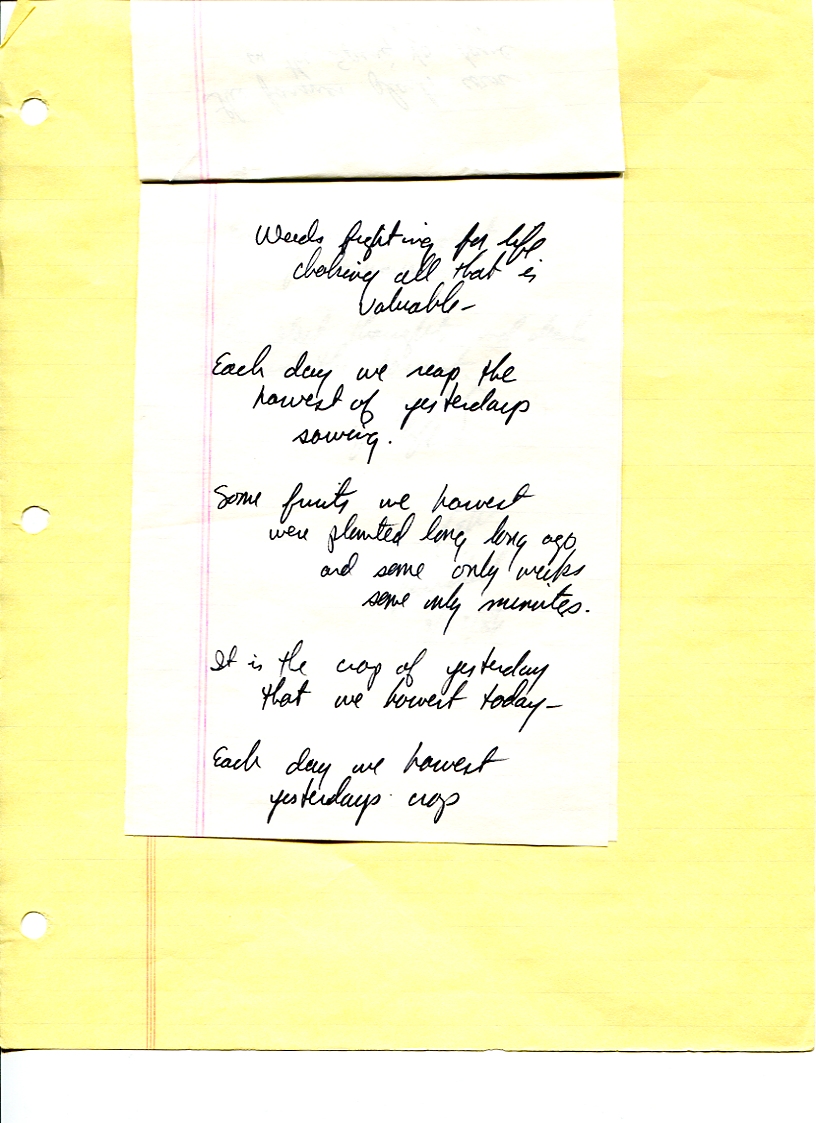 Weeds fighting for life
choking all that is
valuable-
Each day we reap the
harvest of yesterdays
sowing.
Some fruits we harvest
were planted long long ago
and some only weeks
some only minutes.
It is the crop of yesterday
that we harvest today-
Each day we harvest
yesterdays crop